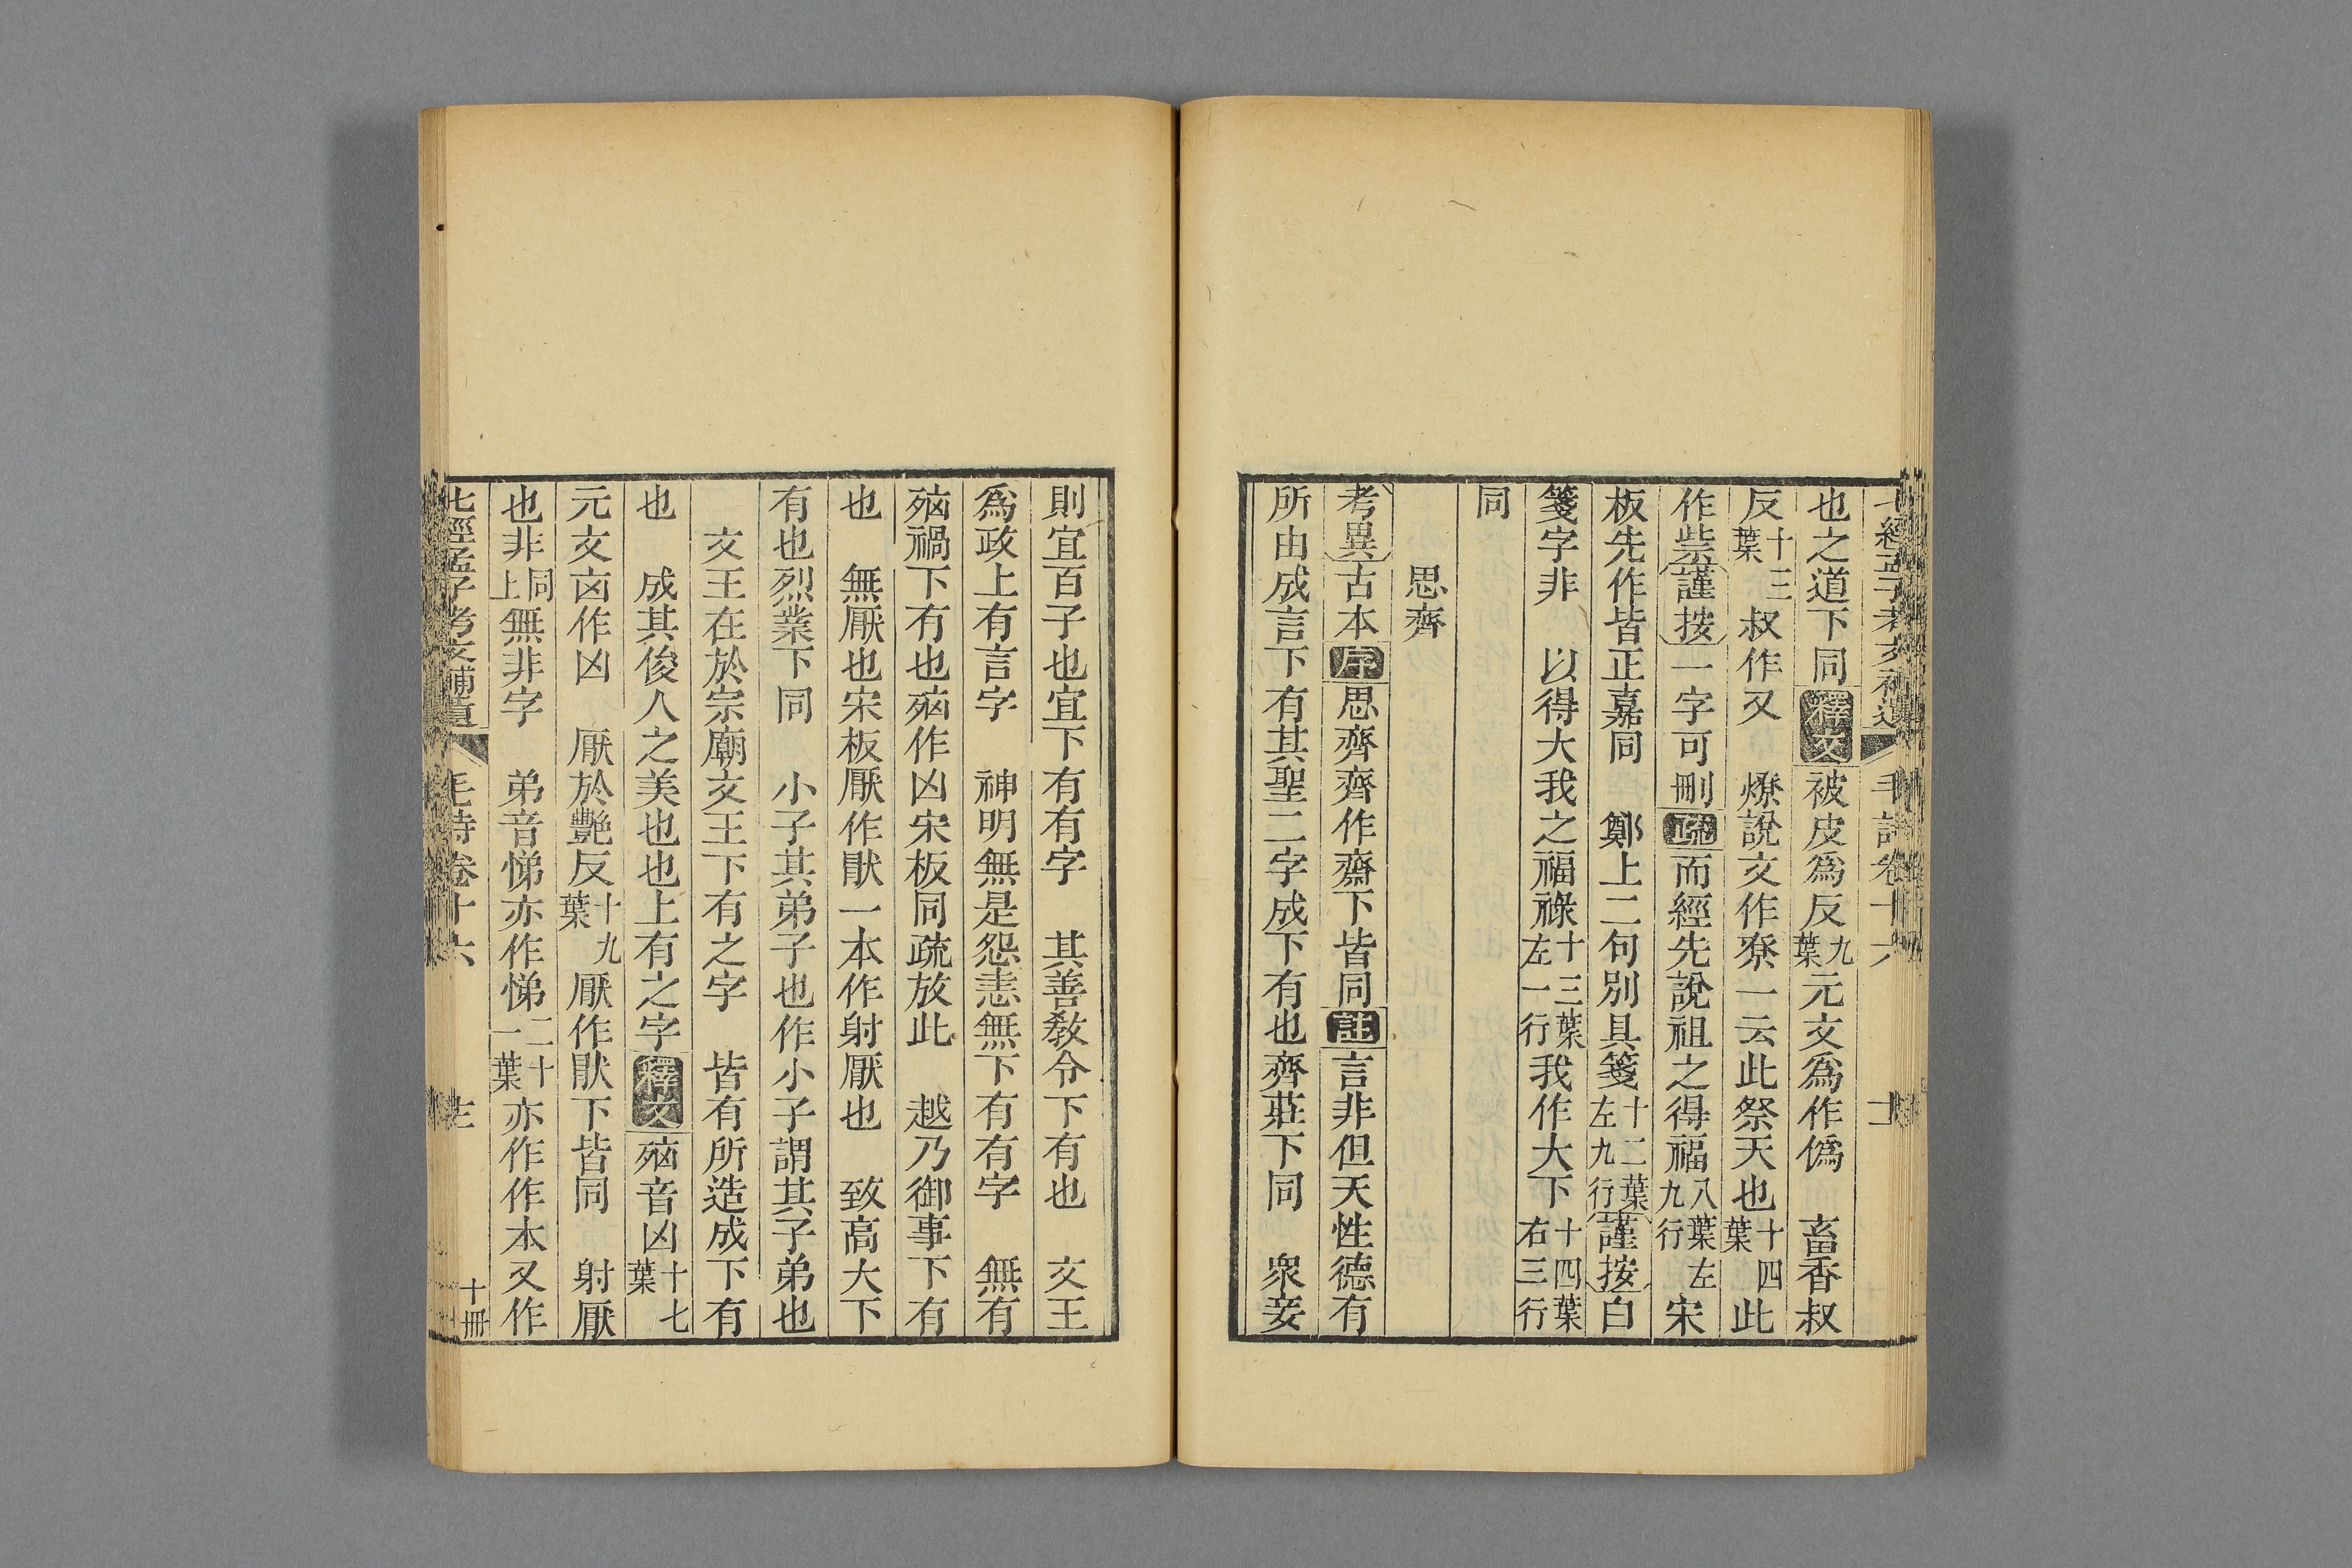 七經孟子考文補遺 毛詩卷十六
也之道下同釋文被皮爲反九葉元文爲作僞 畜香叔
反十三葉叔作又 燎說文作尞一云此祭天也十四葉此
作祡謹按一字可刪疏而經先說祖之得福八葉左九行宋
板先作皆正嘉同 鄭上二句別具箋十二葉左九行謹按白
箋字非 以得大我之福祿十三葉左一行我作大下十四葉右三行
同
思齊
考異古本序思齊齊作齋下皆同註言非但天性德有
所由成言下有其聖二字成下有也齊莊下同 衆妾
則宜百子也宜下有有字 其善敎令下有也 文王
爲政上有言字 神明無是怨恚無下有有字 無有
㓙禍下有也㓙作凶宋板同疏放此 越乃御事下有
也 無厭也宋板厭作猒一本作射厭也 致高大下
有也烈業下同 小子其弟子也作小子謂其子弟也
文王在於宗廟文王下有之字 皆有所造成下有
也 成其俊人之美也也上有之字釋文㓙音凶十七葉
元文㐫作凶 厭於艷反十九葉厭作猒下皆同 射厭
也非同上無非字 弟音悌亦作悌二十一葉亦作作本又作
七經孟子考文補遺 毛詩卷十六 十冊